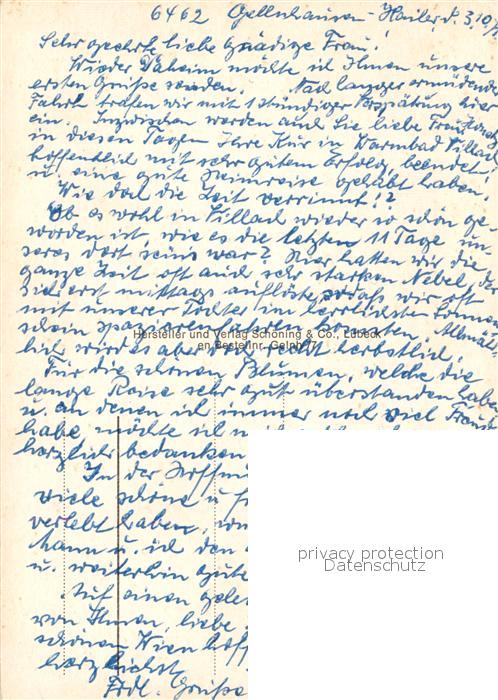 6462 Gelnhausen-Hailer, d. 3.10.
Sehr geehrte liebe gnädige Frau!
Wieder daheim möchte ich Ihnen unsere
ersten Grüße senden. Nach langer ermüdender
Fahrt trafen wir mit 1 stündiger Verspätung hier
ein. Inzwischen werden auch Sie, liebe Frau
in diesen Tagen Ihre Kur in Warmbad Villach
hoffentlich mit sehr gutem Erfolg beendet
u. eine gute Heimreise gehabt haben!
Wie doch die Zeit verrinnt!?
Ob es wohl in Villach wieder so schön ge-
worden ist, wie es die letzten 11 Tage un-
seres dort seins war? Hier hatten wir die
ganze Zeit oft auch sehr starken Nebel, der
sich erst mittags auflöste, sodaß wir oft
mit unserer Tochter im herrlichsten Sonnen
schein spazieren fahren konnten. Allmäh-
Hersteller und Verlag Schöning & Co., Lübeck
lich wird es aber doch recht herbstlich.
en Bestellnr. Gelnh 17
Für die schönen Blumen, welche die
lange Reise sehr gut überstanden haben
u. an denen ich immer noch viel Freude
habe, möchte ich
herzlich bedanken
In der Hoffnu
viele schöne u.
verlebt haben,
Mann u. ich den
u. weiterhin gute
Auf einen
von Ihnen, liebe
schönen Wien
herzlichst
Frdl. Grüße
privacy protection
Datenschutz